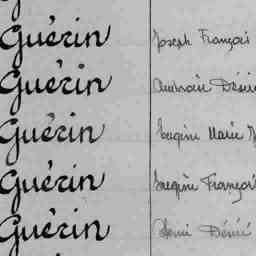 Guérin Joseph François
Guérin Ambroise Désiré
Guérin Eugène Marie
Guérin Eugène François
Guérin Désiré